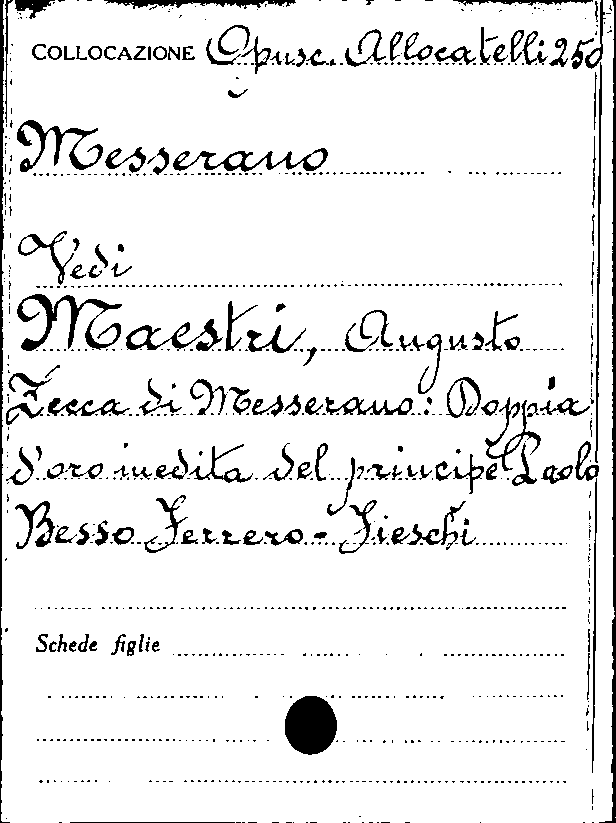 COLLOCAZIONE Opusc. Allocatelli 250
Messerano
Vedi
Maestri, Augusto
Zecca di Messerano: Doppia
d'oro inedita del principe Paolo
Besso Ferrero-Fieschi
Schede figlie